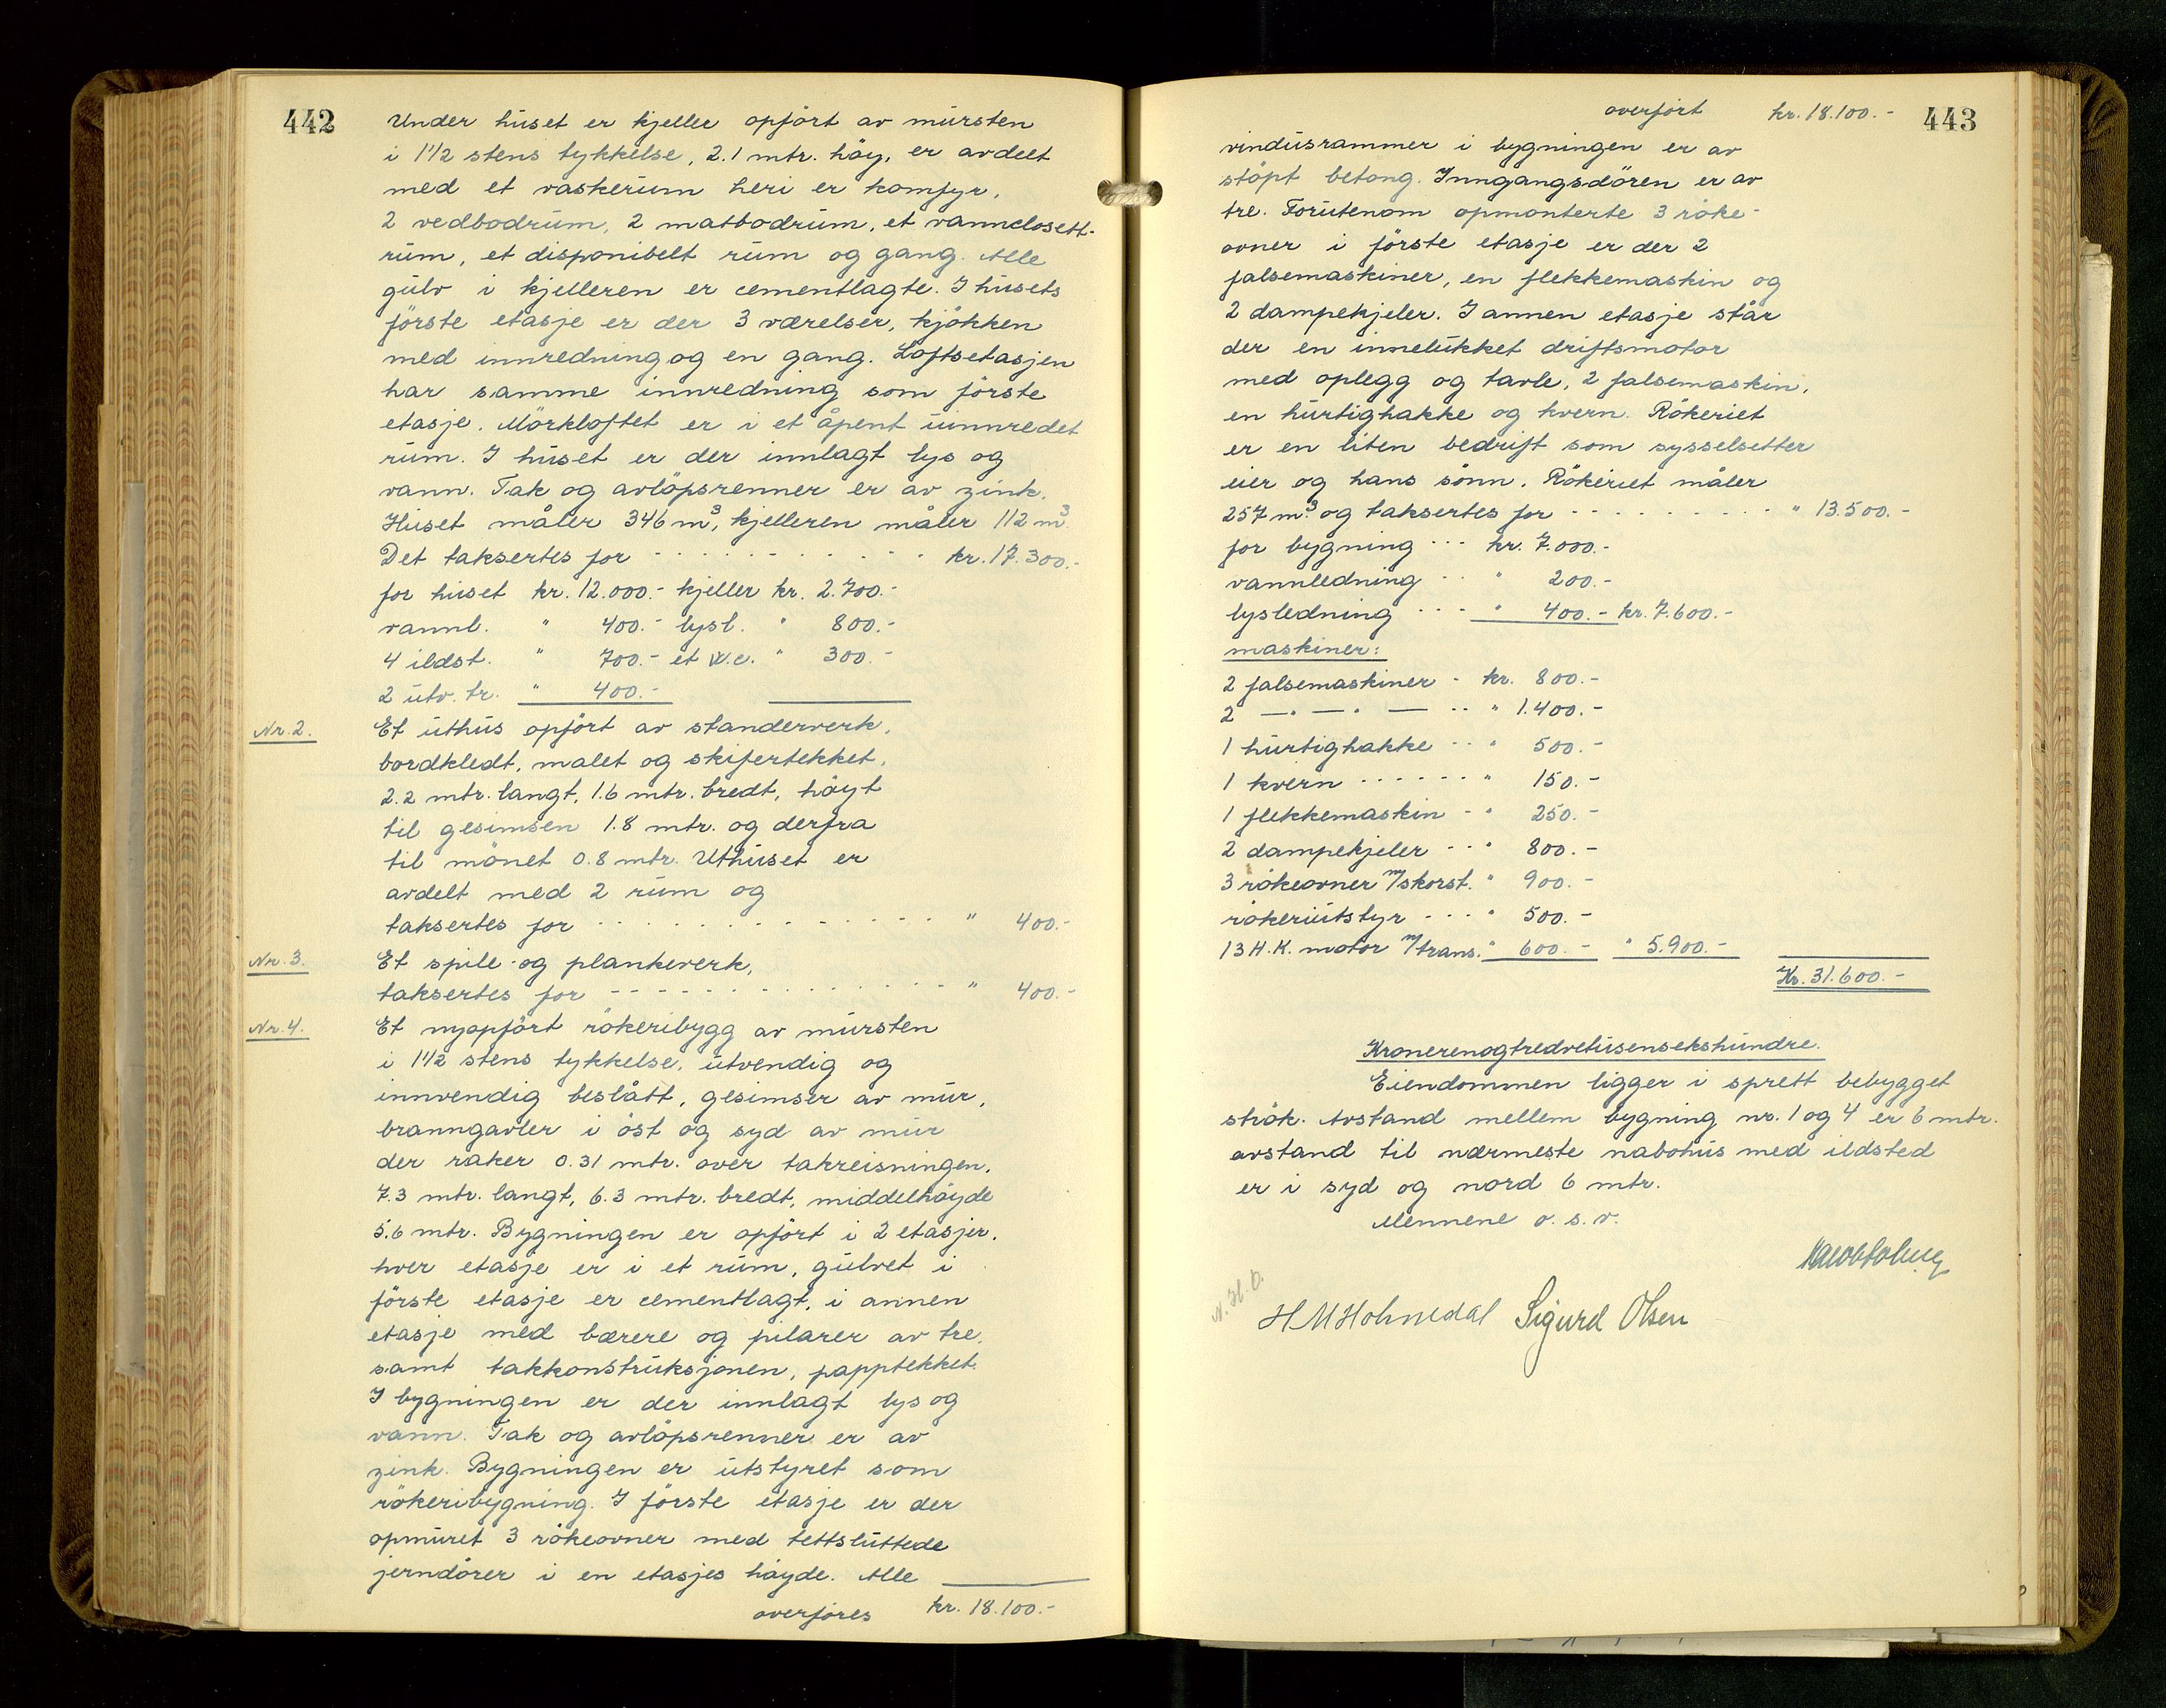 442
Under huset er kjeller opfört av mursten
i 1 1/2 stens tykkelse, 2.1 mtr. höy, er avdelt
med et vaskerum heri er komfyr,
2 vedbodrum, 2 matbodrum, et vannclosett-
rum, et disponibelt rum og gang. Alle
gulv i kjelleren er cementlagte. I husets
förste etasje er der 3 værelser, kjökken
med innredning og en gang. Loftsetasjen
har samme innredning som förste
etasje. Mörkloftet er i et åpent uinnredet
rum. I huset er der innlagt lys og
vann. Tak og avlöpsrenner er av zink.
Huset måler 346 m³, kjelleren måler 112 m³.
Det taksertes for - - - - - - - - - - kr. 17.300.-
for huset kr. 12.000.- kjeller kr. 2.700.-
vannl. " 400.- lysl. " 800.-
4 ildst. " 700.- et W.c. " 300.-
2 utv. tr. " 400.-
Nr. 2. Et uthus opfört av standerverk,
bordkledt, malet og skifertekket,
2.2 mtr. langt, 1.6 mtr. bredt, höyt
til gesimsen 1.8 mtr. og derfra
til mönet 0.8 mtr. Uthuset er
avdelt med 2 rum og
taksertes for - - - - - - - - - - " 400.-
Nr. 3. Et spile- og plankeverk,
taksertes for - - - - - - - - - - " 400.-
Nr. 4. Et nyopfört rökeribygg av mursten
i 1 1/2 stens tykkelse, utvendig og
innvendig beslått, gesimser av mur,
branngavler i öst og syd av mur
der raker 0.31 mtr. over takreisningen,
7.3 mtr. langt, 6.3 mtr. bredt, middelhöyde
5.6 mtr. Bygningen er opfört i 2 etasjer,
hver etasje er i et rum, gulvet i
förste etasje er cementlagt, i annen
etasje med bærere og pilarer av tre,
samt takkonstruksjonen, papptekket.
I bygningen er der innlagt lys og
vann. Tak og avlöpsrenner er av
zink. Bygningen er utstyret som
rökeribygning. I förste etasje er der
opmuret 3 rökeovner med tettsluttede
jerndörer i en etasjes höyde. Alle
overföres kr. 18.100.-
443
overfört kr. 18.100.-
vindusrammer i bygningen er av
stöpt betong. Inngangsdören er av
tre. Forutenom opmonterte 3 röke-
ovner i förste etasje er der 2
falsemaskiner, en flekkemaskin og
2 dampekjeler. I annen etasje står
der en innelukket driftsmotor
med oplegg og tavle, 2 falsemaskin,
en hurtighakke og kvern. Rökeriet
er en liten bedrift som sysselsetter
eier og hans sönn. Rökeriet måler
257 m³. og taksertes for - - - - - - - - - " 13.500.-
for bygning - - - kr. 7.000.-
vannledning - - " 200.-
lysledning - - - " 400.- kr. 7.600.-
maskiner:
2 falsemaskiner - kr. 800.-
2 — " — " — - - " 1.400.-
1 hurtighakke - - " 500.-
1 kvern - - - - - - " 150.-
1 flekkemaskin - " 250.-
2 dampekjeler - - " 800.-
3 rökeovner m/skorst. " 900.-
rökeriutstyr - - - " 500.-
13 H.K. motor m/trans. " 600.- " 5.900.-
Kr. 31.600.-
Kronerenogtredvetusensekshundre.
Eiendommen ligger i sprett bebygget
strök. Avstand mellem bygning nr. 1 og 4 er 6 mtr.
avstand til nærmeste nabohus med ildsted
er i syd og nord 6 mtr.
Mennene o. s. v.
N. H. O.
H M Holmedal Sigurd Olsen